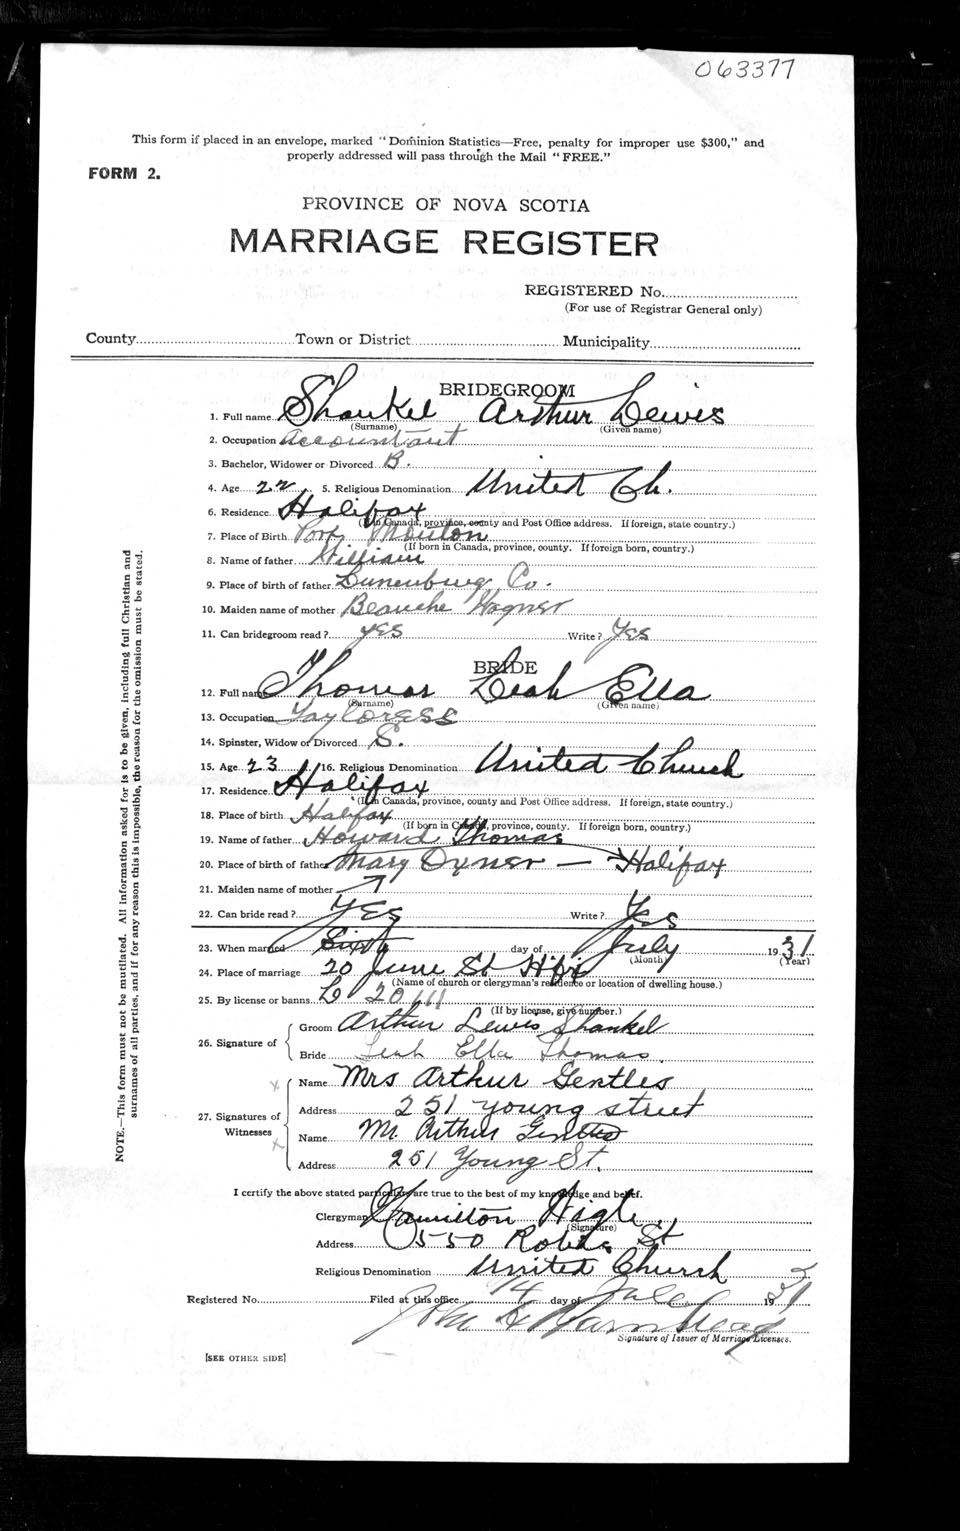 063377
This form if placed in an envelope, marked "Dominion Statistics—Free, penalty for improper use $300," and
properly addressed will pass through the Mail "FREE."
FORM 2.
PROVINCE OF NOVA SCOTIA
MARRIAGE REGISTER
REGISTERED No.
(For use of Registrar General only)
County Town or District Municipality
BRIDEGROOM
1. Full name Shankel Arthur Lewis
(Surname) (Given name)
2. Occupation Accountant
3. Bachelor, Widower or Divorced B.
4. Age 22 5. Religious Denomination United Ch.
6. Residence Halifax
(If in Canada, province, county and Post Office address. If foreign, state country.)
7. Place of Birth Port Mouton
(If born in Canada, province, county. If foreign born, country.)
8. Name of father William
9. Place of birth of father Lunenburg Co.
10. Maiden name of mother Beauche Wagner
11. Can bridegroom read? yes Write? Yes
BRIDE
12. Full name Thomas Leah Ella
(Surname) (Given name)
13. Occupation Tayloress
14. Spinster, Widow or Divorced S.
15. Age 23 16. Religious Denomination United Church
17. Residence Halifax
(If in Canada, province, county and Post Office address. If foreign, state country.)
18. Place of birth Halifax
(If born in Canada, province, county. If foreign born, country.)
19. Name of father Howard Thomas
20. Place of birth of father Mary Oyner — Halifax
21. Maiden name of mother
22. Can bride read? YES Write? Yes
23. When married Sixth day of July 1931
(Month) (Year)
24. Place of marriage 20 June St Hfx
(Name of church or clergyman's residence or location of dwelling house.)
25. By license or banns L 20111
(If by license, give number.)
26. Signature of
Groom Arthur Lewis Shankel
Bride Leah Ella Thomas.
27. Signatures of
Witnesses
Name Mrs Arthur Gentles
Address 251 young street
Name Mr Arthur Gentles
Address 251 Young St.
I certify the above stated particulars are true to the best of my knowledge and belief.
Clergyman Hamilton Wigle
(Signature)
Address 550 Robie St
Religious Denomination United Church
Registered No. Filed at this office 14 day of 1931
John
Signature of Issuer of Marriage Licenses.
[SEE OTHER SIDE]
NOTE.—This form must not be mutilated. All information asked for is to be given, including full Christian and
surnames of all parties, and if for any reason this is impossible, the reason for the omission must be stated.